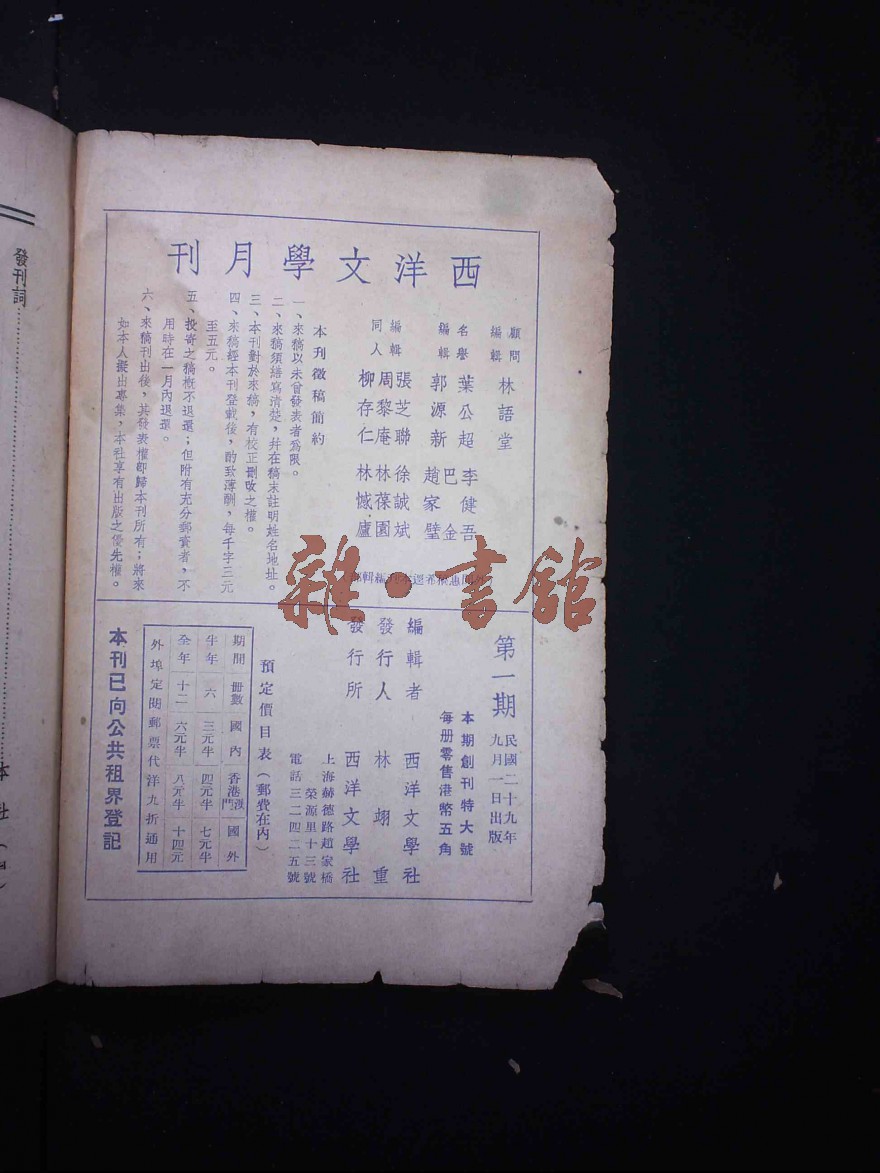 西洋文學月刊
顧問
編輯
林語堂
名譽
編輯
葉公超 李健吾
郭源新 巴金
趙家璧
編輯
同人
張芝聯 徐誠斌
周黎庵 林葆園
柳存仁 林憾廬
本刊徵稿簡約
一、來稿以未曾發表者為限。
二、來稿須繕寫清楚,幷在稿末註明姓名地址。
三、本刊對於來稿,有校正刪改之權。
四、來稿經本刊登載後,酌致薄酬,每千字三元
至五元。
五、投寄之稿概不退還;但附有充分郵資者,不
用時在一月內退還。
六、來稿刊出後,其發表權卽歸本刊所有;將來
如本人擬出專集,本社享有出版之優先權。
第一期
民國二十九年
九月一日出版
本期創刊特大號
每册零售港幣五角
編輯者 西洋文學社
發行人 林翊重
發行所 西洋文學社
上海赫德路趙家橋
榮源里十三號
電話三二四二五號
預定價目表(郵費在內)
期間 冊數 國內 香港澳門 國外
半年 六 三元半 四元半 七元半
全年 十二 六元半 八元半 十四元
外埠定閱郵票代洋九折通用
本刊已向公共租界登記
發刊詞
本社
雜·書館